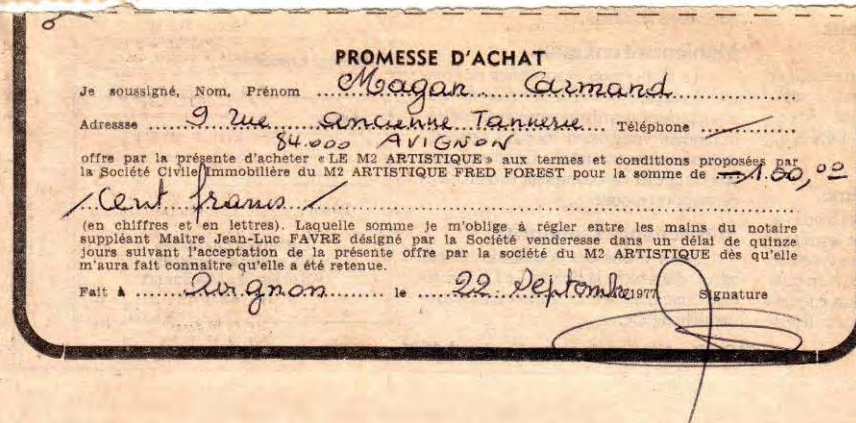 PROMESSE D'ACHAT
Je soussigné, Nom, Prénom Magan Armand
Adressse 9 rue ancienne Tannerie Téléphone
84.000 AVIGNON
offre par la présente d'acheter « LE M2 ARTISTIQUE » aux termes et conditions proposées par
la Société Civile Immobilière du M2 ARTISTIQUE FRED FOREST pour la somme de 100,00
/ Cent francs /
(en chiffres et en lettres). Laquelle somme je m'oblige à régler entre les mains du notaire
suppléant Maître Jean-Luc FAVRE désigné par la Société venderesse dans un délai de quinze
jours suivant l'acceptation de la présente offre par la société du M2 ARTISTIQUE dès qu'elle
m'aura fait connaître qu'elle a été retenue.
Fait à Avignon le 22 Septembre 1977 Signature